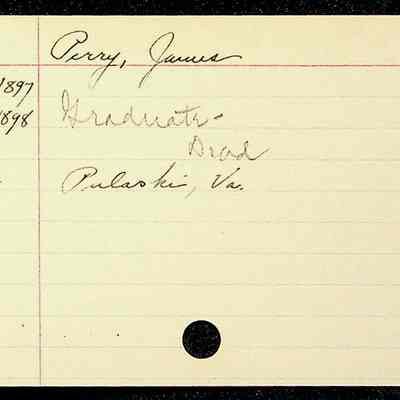 Perry, James
1897
1898 Graduate-
Dead
Pulaski, Va.